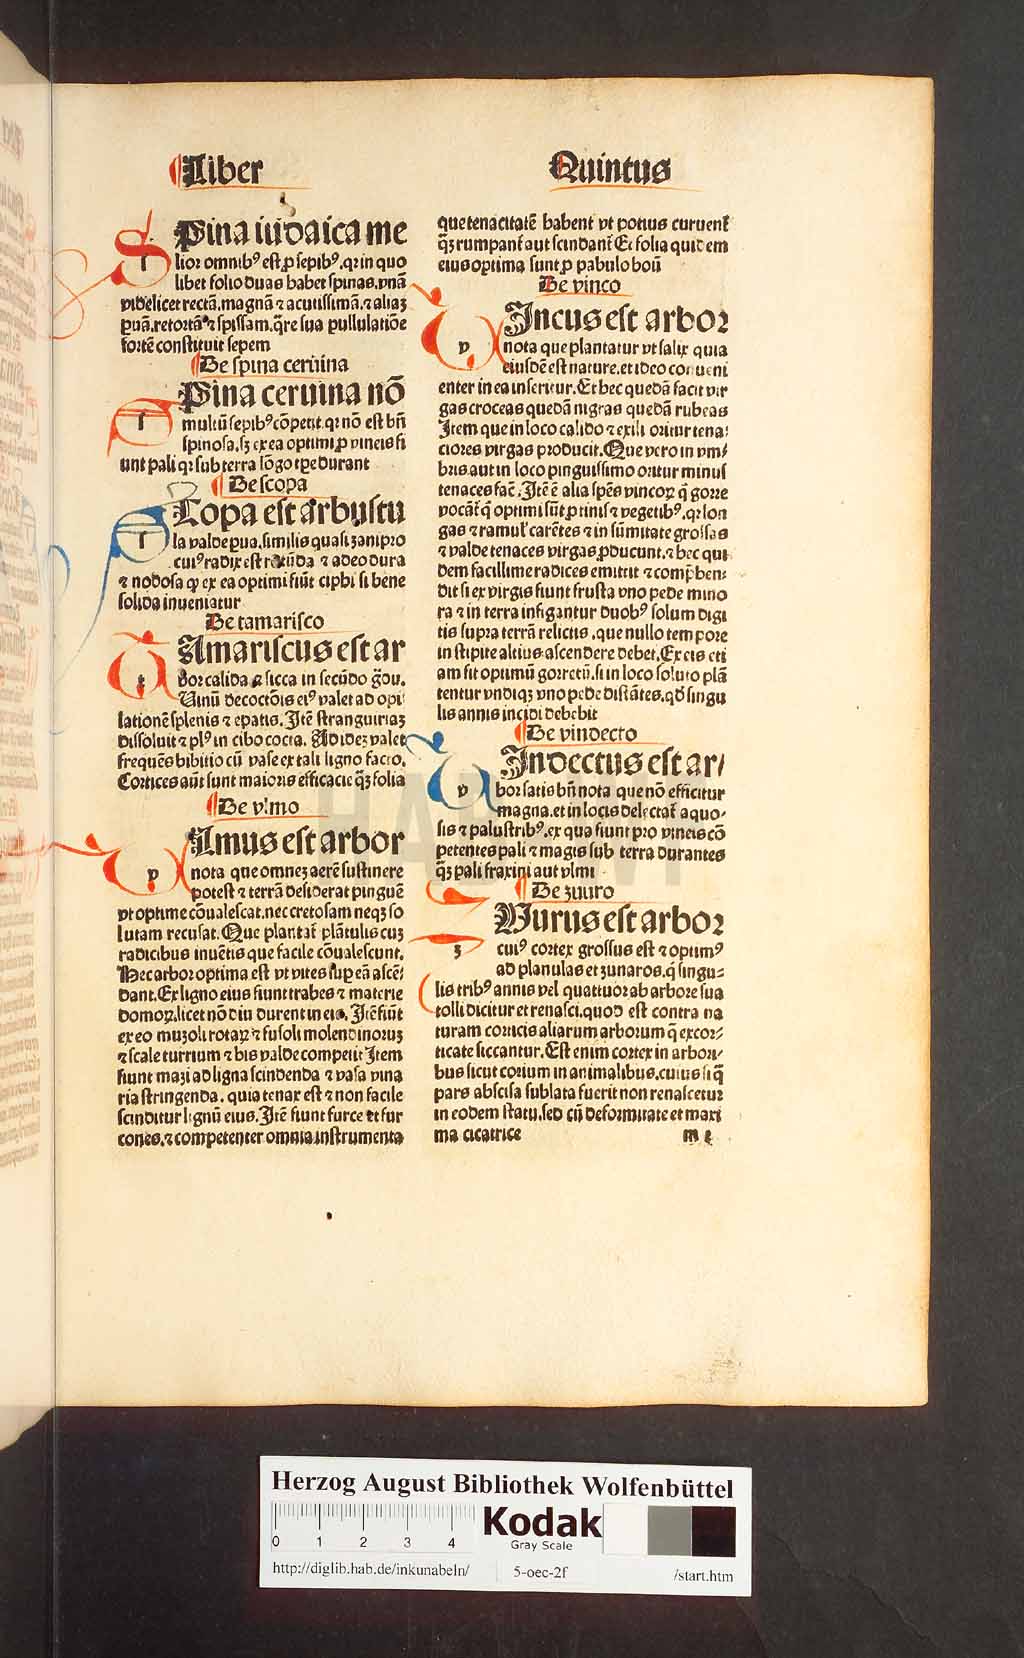 ¶Liber Quintus
Spina iudaica me
lior omnibꝰ est ꝓ sepibꝰ. qꝛ in quo
libet folio duas habet spinas. vnā
videlicet rectā. magnā ⁊ acutissimā. ⁊ aliaꝫ
ꝑuā. retortā ⁊ spissam. q̄re sua pullulatiōe
fortē constituit sepem
¶De spina ceruina
Spina ceruina nō
multū sepibꝰ cōpetit. qꝛ nō est bn̄
spinosa. sꝫ ex ea optimi ꝓ vineis fi
unt pali qꝛ sub terra lōgo tꝑe durant
¶De scopa
Scopa est arbustu
la valde ꝑua. similis quasi zanipro
cuiꝰ radix est rotūda ⁊ adeo dura
⁊ nodosa ꝙ ex ea optimi fiūt ciphi si bene
solida inueniatur
De tamarisco
Tamariscus est ar
bor calida ⁊ sicca in secūdo g̃du.
Uinū decoctōis eiꝰ valet ad opi
lationē splenis ⁊ epatis. Itē stranguiriaꝫ
dissoluit ⁊ plꝰ in cibo cocta. Ad ideꝫ valet
frequēs bibitio cū vase ex tali ligno facto.
Cortices aūt sunt maioris efficacie q̄ꝫ folia
¶De vlmo
Vlmus est arbor
nota que omneꝫ aerē sustinere
potest ⁊ terrā desiderat pinguē
vt optime cōualescat. nec cretosam neqꝫ so
lutam recusat. Que plantat᷑ plātulis cuꝫ
radicibus inuētis que facile cōualescunt.
Hec arbor optima est vt vites suꝑ eā ascē⸗
dant. Ex ligno eius fiunt trabes ⁊ materie
domoꝝ. licet nō diu durent in eis. Itē fiūt
ex eo muzoli rotaꝝ ⁊ fusoli molendinoruꝫ
⁊ scale turrium ⁊ his valde competit Item
fiunt mazi ad ligna scindenda ⁊ vasa vina
ria stringenda. quia tenax est ⁊ non facile
scinditur lignū eius. Itē fiunt furce et fur
cones. ⁊ competenter omnia instrumenta
que tenacitatē habent vt potius curuent᷑
q̄ꝫ rumpant᷑ aut scindant᷑ Et folia quidem
eius optima sunt ꝓ pabulo boū
De vinco
Vincus est arbor
nota que plantatur vt salix quia
eiusdē est nature. et ideo conueni
enter in ea inseritur. Et hec quedā facit vir
gas croceas quedā nigras quedā rubeas
Item que in loco calido ⁊ exili oritur tena⸗
ciores virgas producit. Que vero in vm⸗
bris. aut in loco pinguissimo oritur minus
tenaces fac̄. Itē ē alia spēs vincoꝝ q̄ gorre
vocāt᷑ q̄ optimi sūt ꝓ tinis ⁊ vegetibꝰ. qꝛ lon
gas ⁊ ramul᷑ carētes ⁊ in sūmitate grossas
⁊ valde tenaces virgas ꝓducunt. ⁊ hec qui
dem facillime radices emittit ⁊ comp̄hen⸗
dit si ex virgis fiunt frusta vno pede mino
ra ⁊ in terra infigantur duobꝰ solum digi
tis supra terrā relictis. que nullo tempore
in stipite altius ascendere debet. Ex eis eti
am fit optimū gorretū. si in loco soluto plā
tentur vndiqꝫ vno pede distātes. qd̄ singu
lis annis incidi debebit
¶De vindecto
Vindectus est ar⸗
bor satis bn̄ nota que nō efficitur
magna. et in locis delectat᷑ aquo⸗
sis ⁊ palustribꝰ. ex qua fiunt pro vineis cō
petentes pali ⁊ magis sub terra durantes
q̄ꝫ pali fraxini aut vlmi
¶De zuuro
Zuurus est arbor
cuiꝰ cortex grossus est ⁊ optimꝰ
ad planulas et zunaros. q̄ singu⸗
lis tribꝰ annis vel quattuor ab arbore sua
tolli dicitur et renasci. quod est contra na
turam corticis aliarum arborum q̄ excor⸗
ticate siccantur. Est enim cortex in arbori⸗
bus sicut corium in animalibus. cuius si q̄
pars abscisa sublata fuerit non renascetur
in eodem statu. sed cū deformitate et maxi
ma cicatrice
Herzog August Bibliothek Wolfenbüttel
0 1 2 3 4
Kodak
Gray Scale
http://diglib.hab.de/inkunabeln/ 5-oec-2f /start.htm